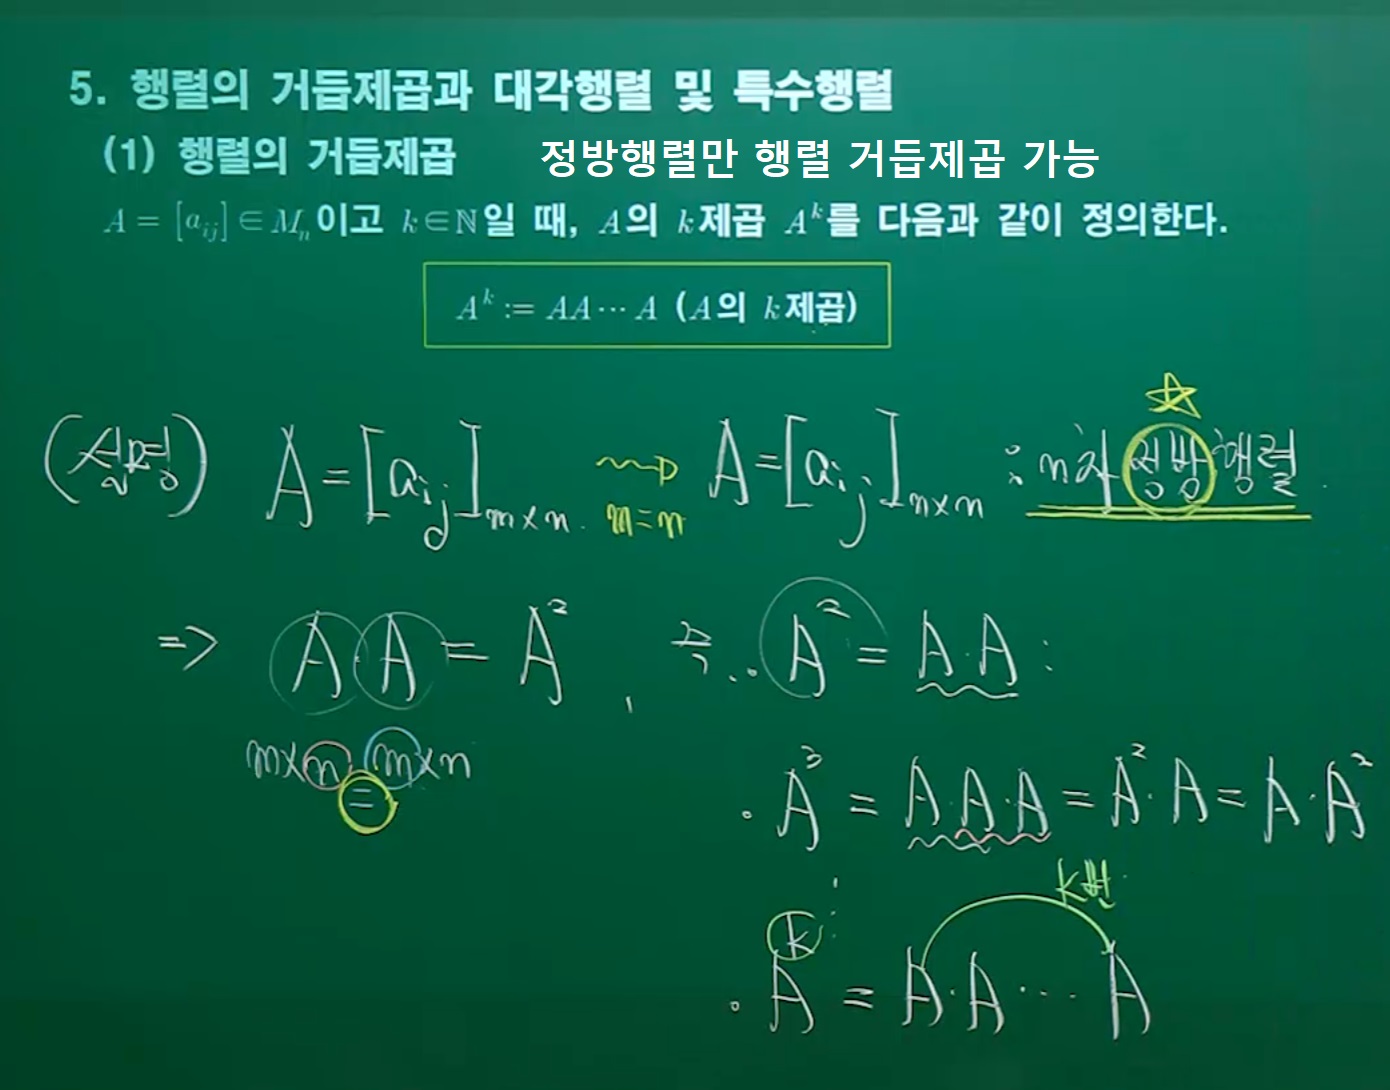 5. 행렬의 거듭제곱과 대각행렬 및 특수행렬
(1) 행렬의 거듭제곱 정방행렬만 행렬 거듭제곱 가능
A = [a_{ij}] ∈ M_n 이고 k∈ℕ일 때, A의 k제곱 A^k를 다음과 같이 정의한다.
A^k := AA⋯A (A의 k제곱)
(설명) A = [a_{ij}]_{m×n} ⇝ m=n A = [a_{ij}]_{n×n} : n차 정방행렬
⇒ A·A = A², 즉. A² = A·A :
m×n = m×n
· A³ = A·A·A = A²·A = A·A²
k번
· A^k = A·A⋯A